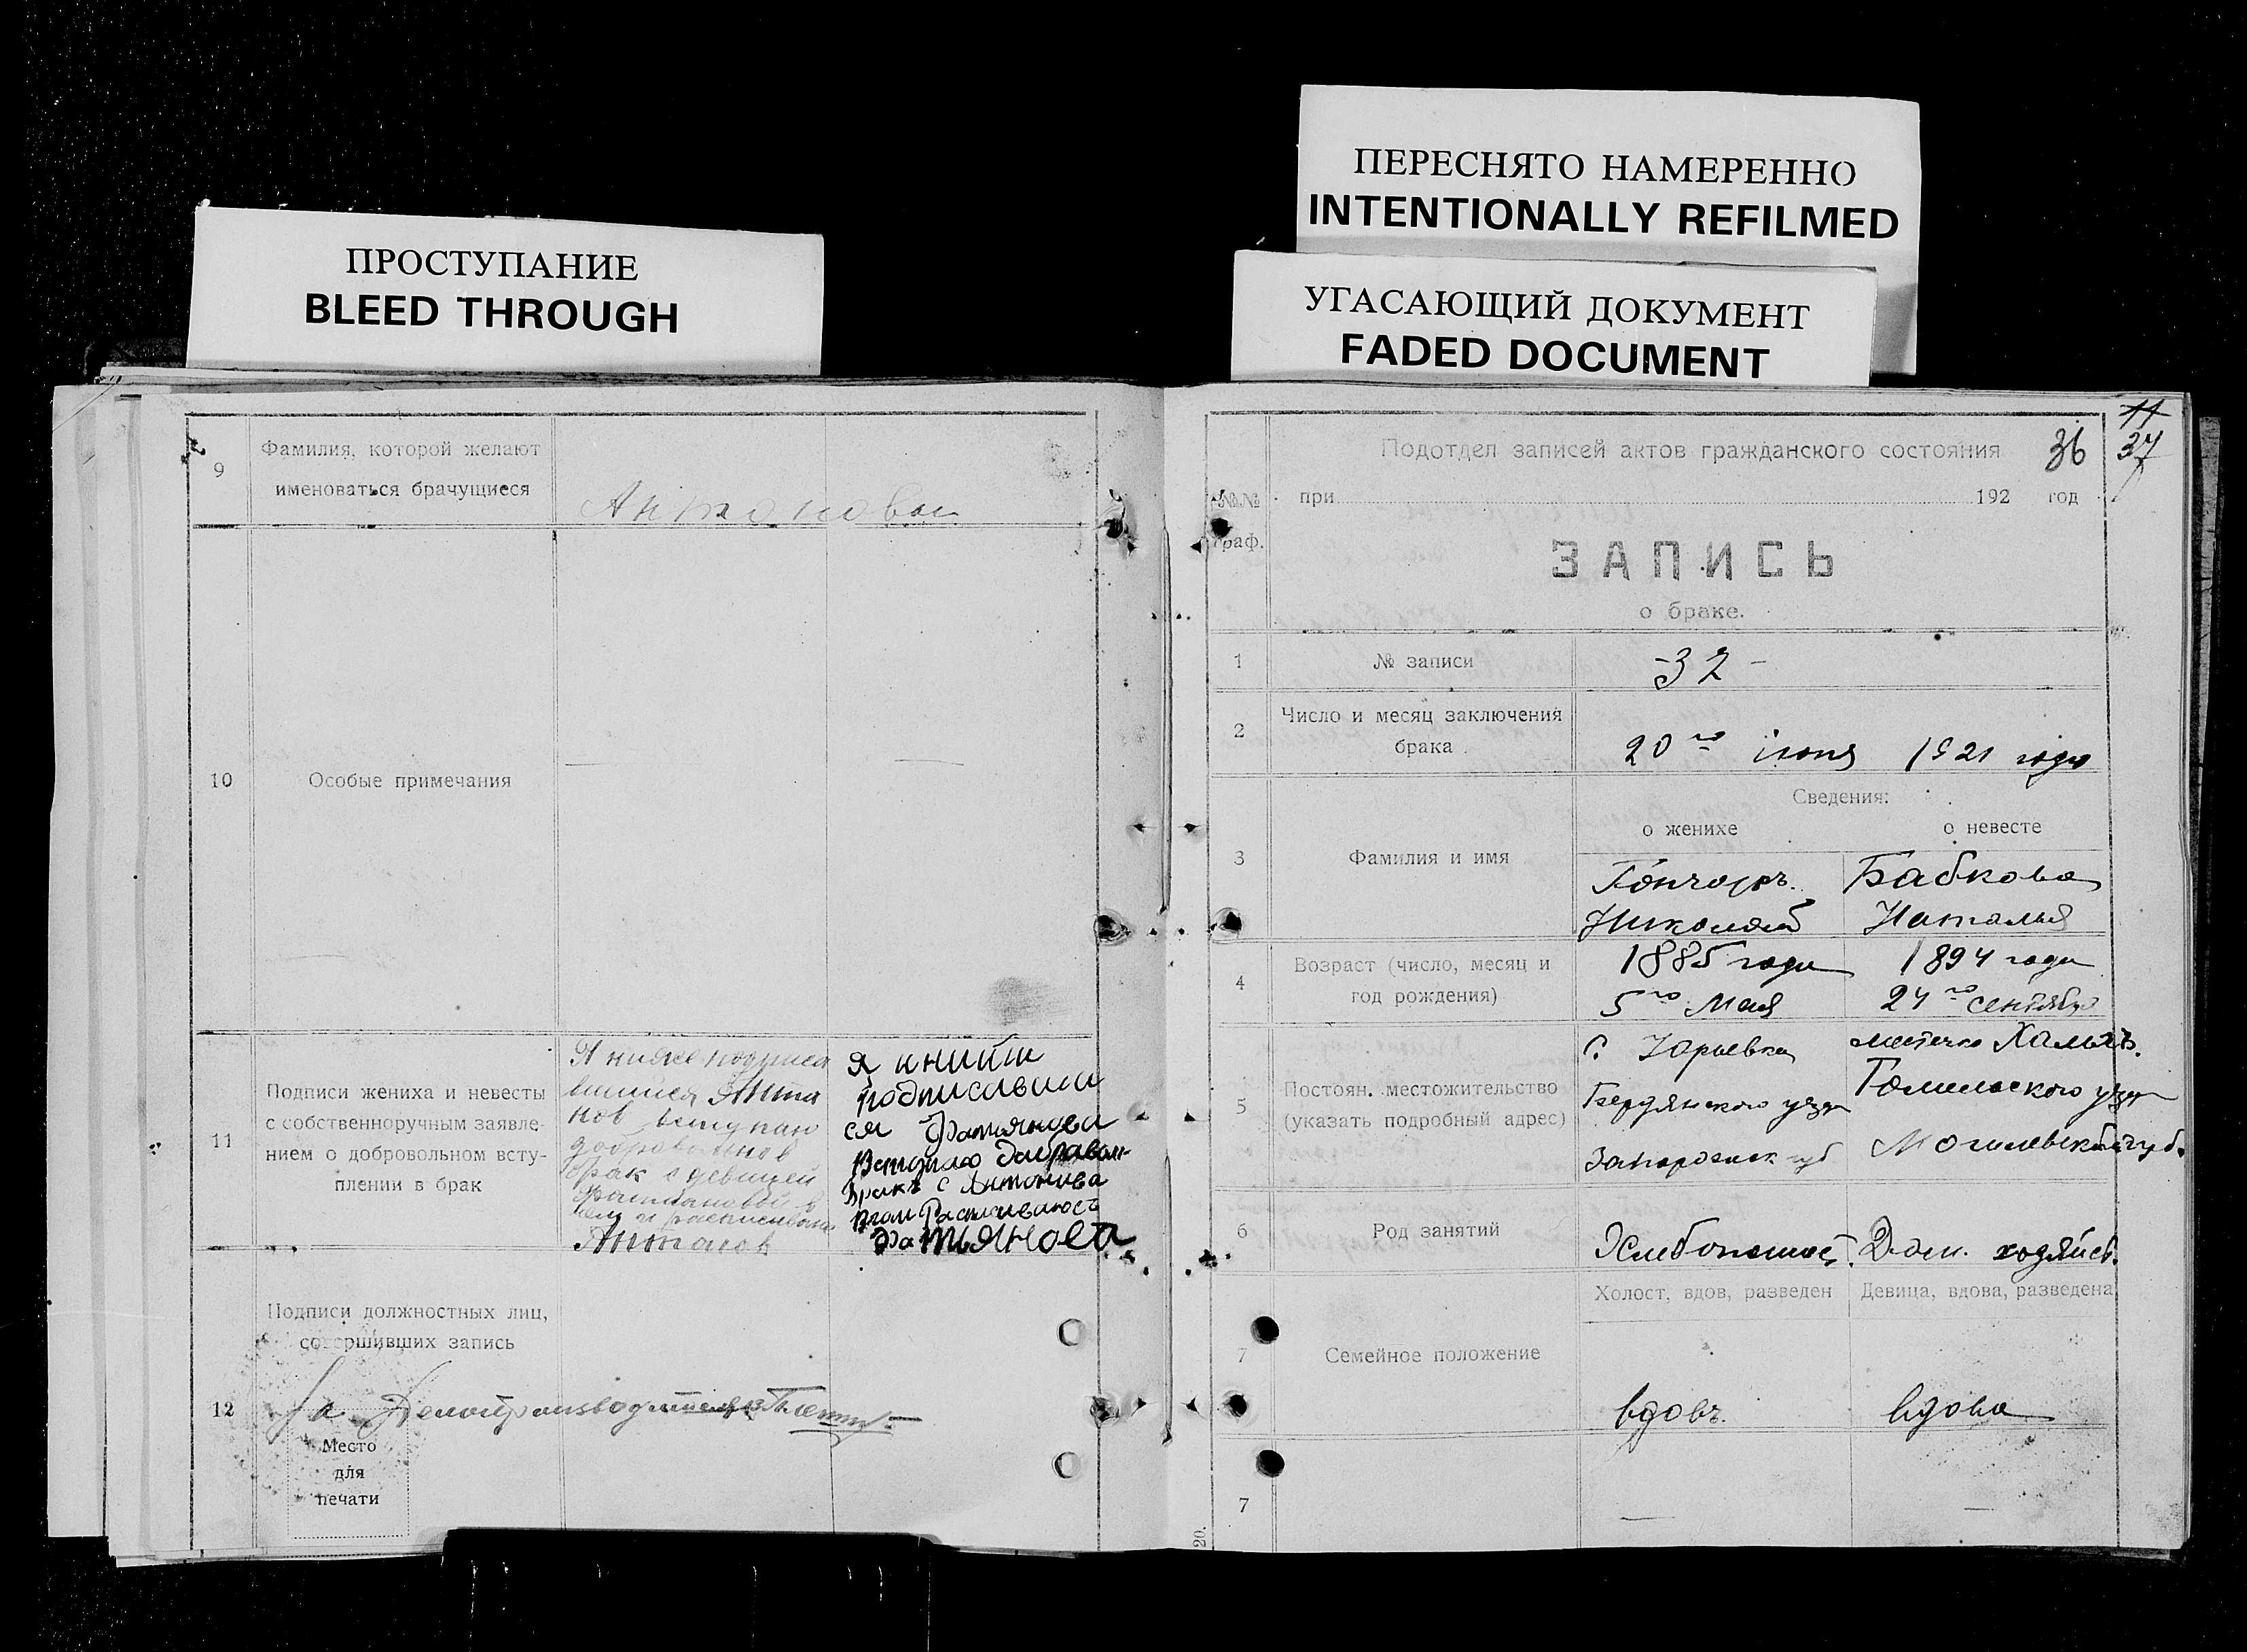 ПРОСТУПАНИЕ
BLEED THROUGH
ПЕРЕСНЯТО НАМЕРЕННО
INTENTIONALLY REFILMED
УГАСАЮЩИЙ ДОКУМЕНТ
FADED DOCUMENT
9
Фамилия, которой желают
именоваться брачущиеся
10
Особые примечания
11
Подписи жениха и невесты
с собственноручным заявле-
нием о добровольном всту-
плении в брак
Я ниже подписа
вшийся Анта
нов вступаю
брак с девицей
Антонов
я
подписавши
ся Фатьянова
Бракъ с
Фатьянова
Подписи должностных лиц,
совершивших запись
12
За Делопроизводителя
Место
для
печати
11
37
36
Подотдел записей актов гражданского состояния
при 192 год
№№
граф.
ЗАПИСЬ
о браке.
1
№ записи
-32-
2
Число и месяц заключения
брака
20го июня 1921 года
Сведения:
о женихе
о невесте
3
Фамилия и имя
Гончаръ. Бабкова
Николай Наталья
4
Возраст (число, месяц и
год рождения)
1885 года 1894 года
5го Мая 24го сентября
5
Постоян. местожительство
(указать подробный адрес)
с. Юрьевка местечко
Бердянского уезда Гомельского уезда
Запорожск губ Могилевской губ.
6
Род занятий
Хлебопашец. Дом. хозяйст.
Холост, вдов, разведен
Девица, вдова, разведена
7
Семейное положение
вдовъ. вдова
7
20.